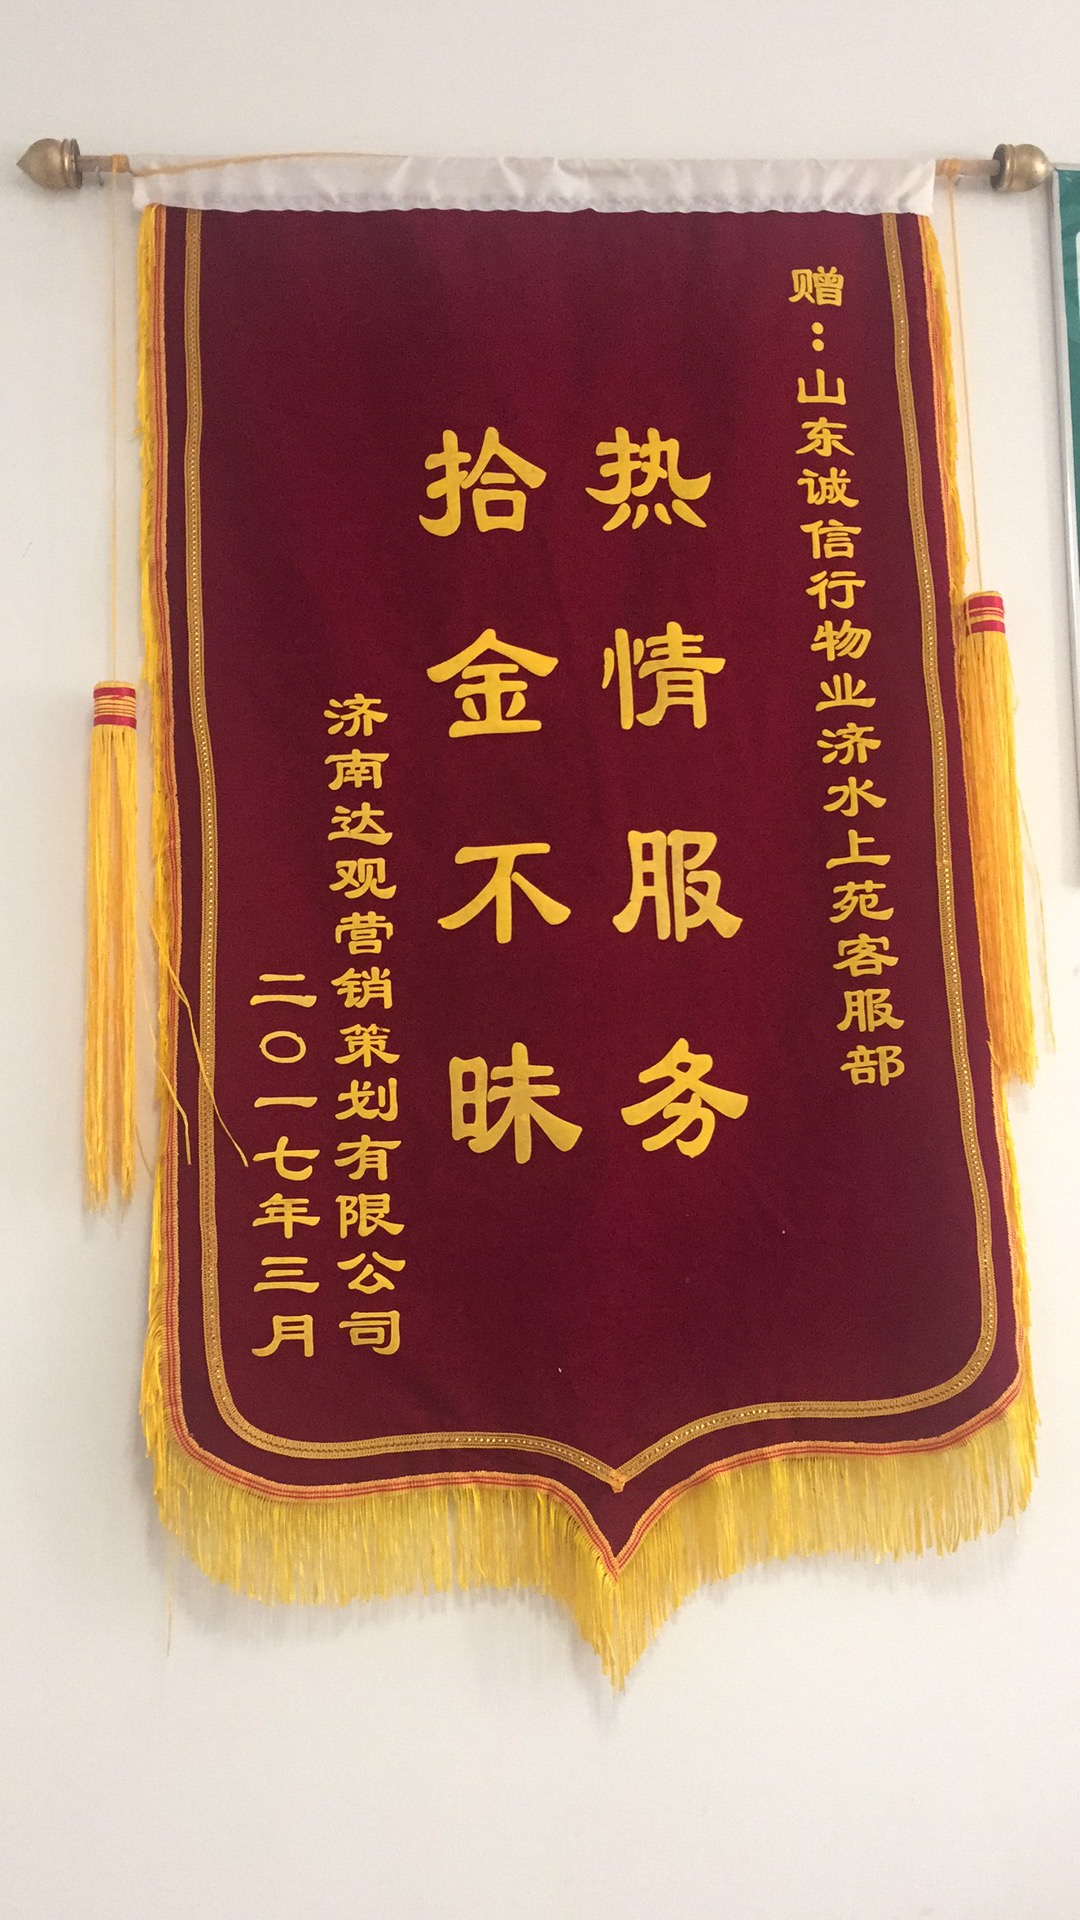 赠：山东诚信行物业济水上苑客服部
热情服务
拾金不昧
济南达观营销策划有限公司
二〇一七年三月